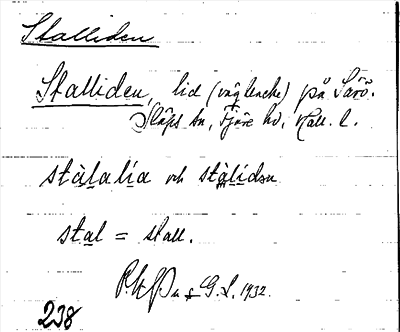 Stalliden
Stalliden, lid (vägbacke) på Särö.
Släps sn, Fjäre hd, Hall. l.
stàlalía och stàlídən
stal = stall.
G. L. 1932.
238